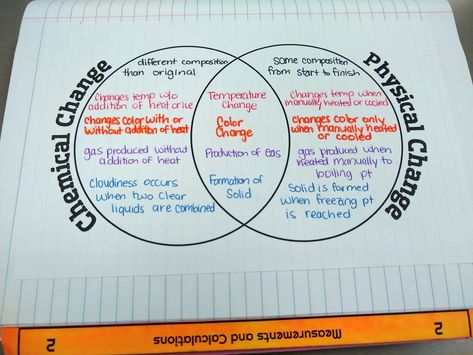 Chemical Change
Physical Change
different composition
than original
Changes temp w/o
addition of heat
changes color with or
without addition of heat
gas produced without
addition of heat
Cloudiness occurs
when two clear
liquids are combined
Temperature
Change
Color
Change
Production of Gas
Formation of
Solid
Same composition
from start to finish
Changes temp when
manually heated or cooled
changes color only
when manually heated
or cooled
gas produced when
heated manually to
boiling pt
Solid is formed
when freezing pt
is reached
2
Measurements and Calculations
2